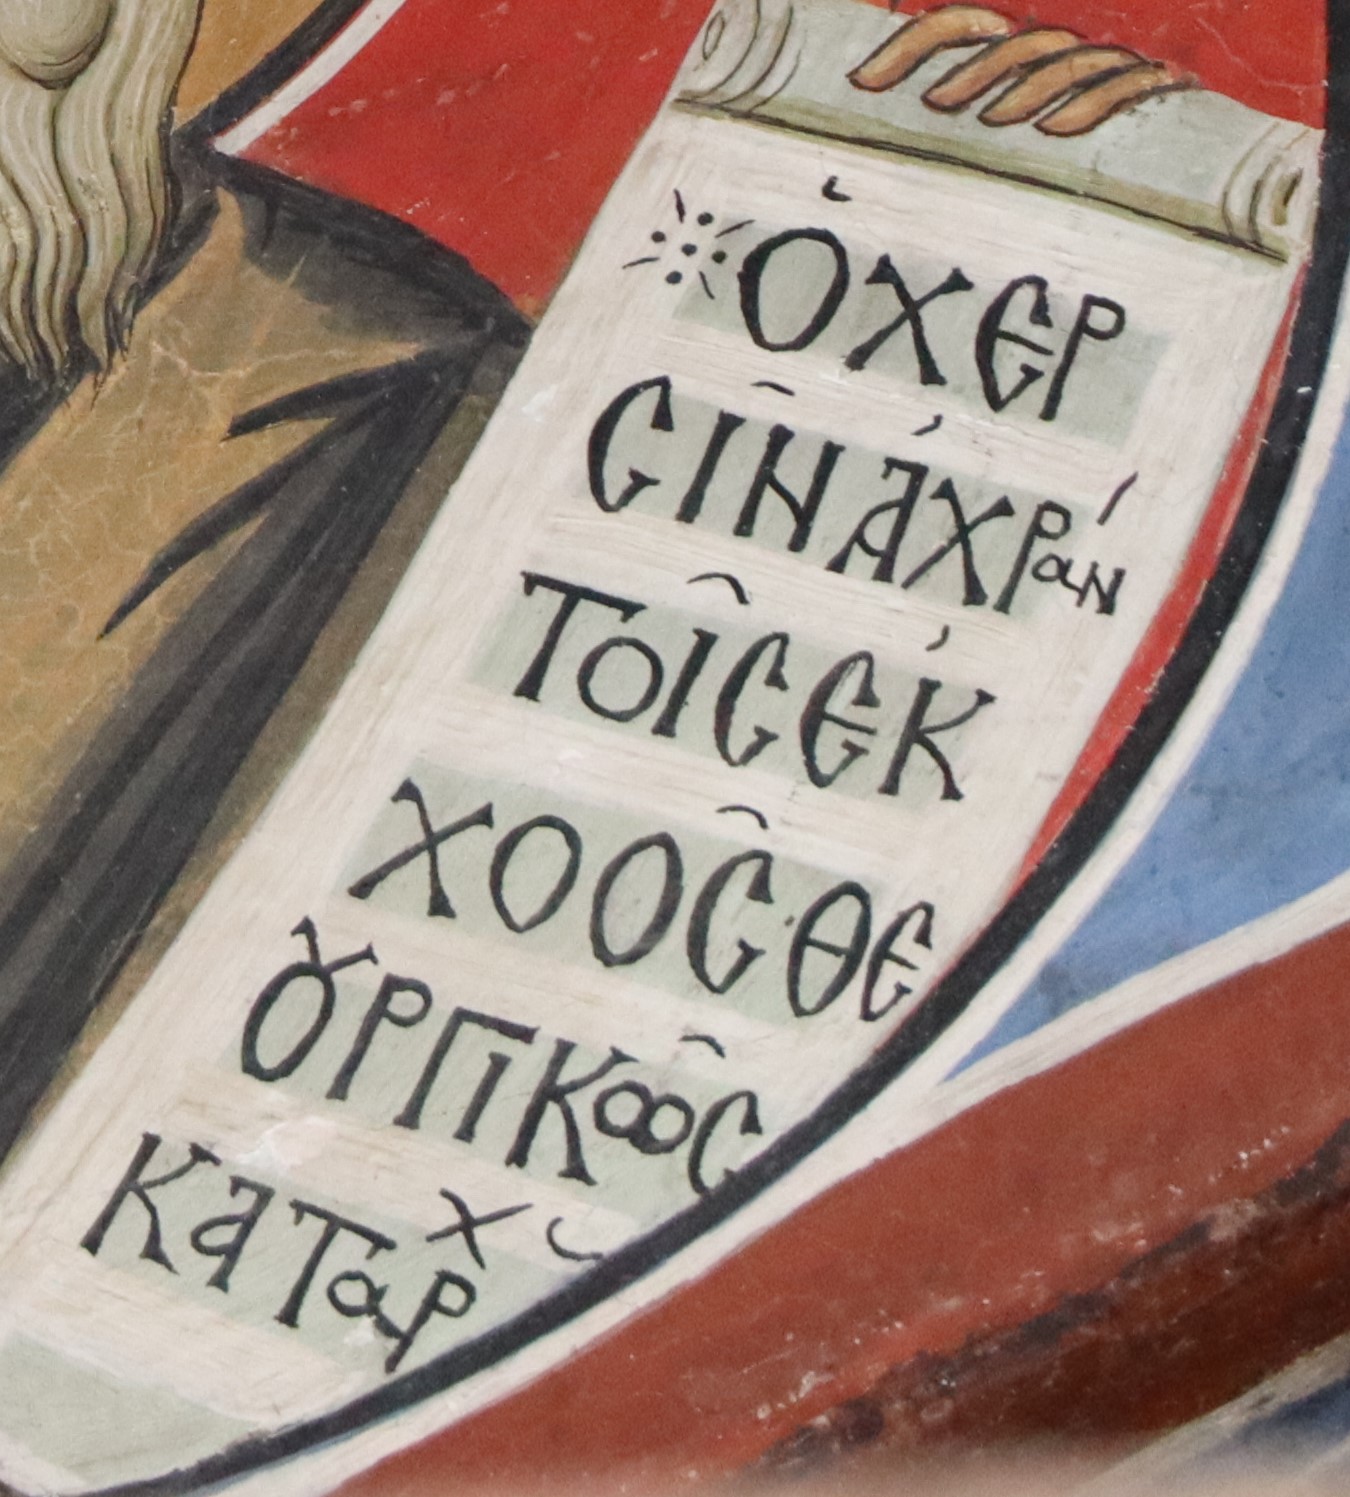 Ὁ ΧΕΡ
CὶΝ ἀΧΡάΝ
ΤΟΙC ἐΚ
ΧΟΟC ΘΕ
ȣΡΓΙΚῶC
ΚΑΤΑΡΧ